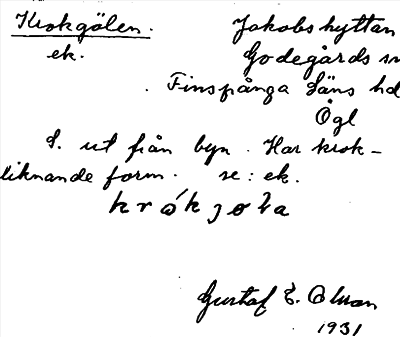 Krokgölen. Jakobshyttan
ek. Godegårds sn
Finspånga läns hd
Ögl
S. ut från byn. Har krok-
liknande form. se: ek.
Gustaf E. Olsson
1931